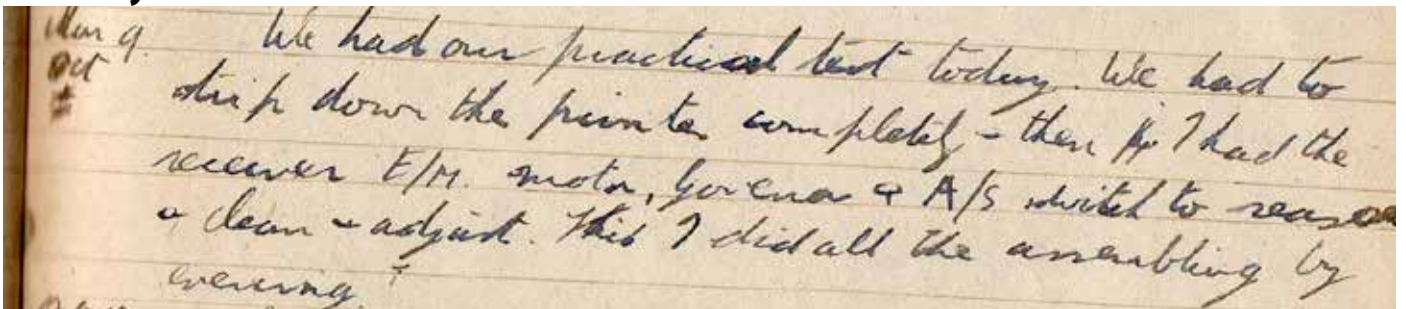 Mon 9. We had our practical test today. We had to
Oct strip down the printer completely - then I had the
receiver E/M. motor, Govenor & A/S switch to
& clean & adjust. This I did all the assembling by
evening